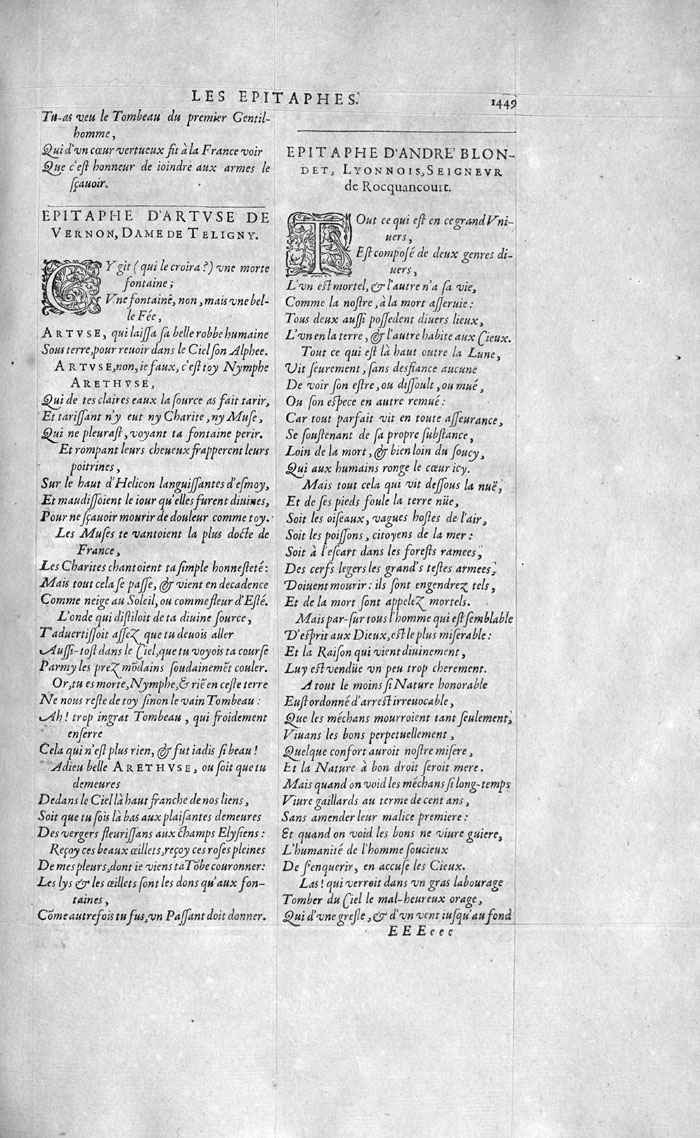 LES EPITAPHES.
1449
Tu-as veu le Tombeau du premier Gentil-
homme,
Qui d'vn cœur vertueux fit à la France voir
Que c'est honneur de ioindre aux armes le
sçauoir.
EPITAPHE D'ARTVSE DE
VERNON, DAME DE TELIGNY.
CY git (qui le croira?) vne morte
fontaine;
Vne fontaine, non, mais vne bel-
le Fée,
ARTVSE, qui laissa sa belle robbe humaine
Sous terre, pour reuoir dans le Ciel son Alphee.
ARTVSE, non, ie faux, c'est toy Nymphe
ARETHVSE,
Qui de tes claires eaux la source as fait tarir,
Et tarissant n'y eut ny Charite, ny Muse,
Qui ne pleurast, voyant ta fontaine perir.
Et rompant leurs cheueux frapperent leurs
poitrines,
Sur le haut d'Helicon languissantes d'esmoy,
Et maudissoient le iour qu'elles furent diuines,
Pour ne sçauoir mourir de douleur comme toy.
Les Muses te vantoient la plus docte de
France,
Les Charites chantoient ta simple honnesteté:
Mais tout cela se passe, & vient en decadence
Comme neige au Soleil, ou comme fleur d'Esté.
L'onde qui distiloit de ta diuine source,
T'aduertissoit assez que tu deuois aller
Aussi-tost dans le Ciel, que tu voyois ta course
Parmy les prez mõdains soudainemẽt couler.
Or, tu es morte, Nymphe, & riẽ en ceste terre
Ne nous reste de toy sinon le vain Tombeau:
Ah! trop ingrat Tombeau, qui froidement
enserre
Cela qui n'est plus rien, & fut iadis si beau!
Adieu belle ARETHVSE, ou soit que tu
demeures
Dedans le Ciel là haut franche de nos liens,
Soit que tu sois là bas aux plaisantes demeures
Des vergers fleurissans aux champs Elysiens:
Reçoy ces beaux œillets, reçoy ces roses pleines
De mes pleurs, dont ie viens ta Tõbe couronner:
Les lys & les œillets sont les dons qu'aux fon-
taines,
Cõme autrefois tu fus, vn Passant doit donner.
EPITAPHE D'ANDRE' BLON-
DET, LYONNOIS, SEIGNEVR
de Rocquancourt.
TOut ce qui est en ce grand Vni-
uers,
Est composé de deux genres di-
uers,
L'vn est mortel, & l'autre n'a sa vie,
Comme la nostre, à la mort asseruie:
Tous deux aussi possedent diuers lieux,
L'vn en la terre, & l'autre habite aux Cieux.
Tout ce qui est là haut outre la Lune,
Vit seurement, sans desfiance aucune
De voir son estre, ou dissoult, ou mué,
Ou son espece en autre remué:
Car tout parfait vit en toute asseurance,
Se soustenant de sa propre substance,
Loin de la mort, & bien loin du soucy,
Qui aux humains ronge le cœur icy.
Mais tout cela qui vit dessous la nuë,
Et de ses pieds foule la terre nüe,
Soit les oiseaux, vagues hostes de l'air,
Soit les poissons, citoyens de la mer:
Soit à l'escart dans les forests ramees,
Des cerfs legers les grand's testes armees,
Doiuent mourir: ils sont engendrez tels,
Et de la mort sont appelez mortels.
Mais par-sur tous l'homme qui est semblable
D'esprit aux Dieux, est le plus miserable:
Et la Raison qui vient diuinement,
Luy est vendüe vn peu trop cherement.
A tout le moins si Nature honorable
Eust ordonné d'arrest irreuocable,
Que les méchans mourroient tant seulement,
Viuans les bons perpetuellement,
Quelque confort auroit nostre misere,
Et la Nature à bon droit seroit mere.
Mais quand on void les méchans si long-temps
Viure gaillards au terme de cent ans,
Sans amender leur malice premiere:
Et quand on void les bons ne viure guiere,
L'humanité de l'homme soucieux
De s'enquerir, en accuse les Cieux.
Las! qui verroit dans vn gras labourage
Tomber du Ciel le mal-heureux orage,
Qui d'vne gresle, & d'vn vent iusqu'au fond
EEEeee